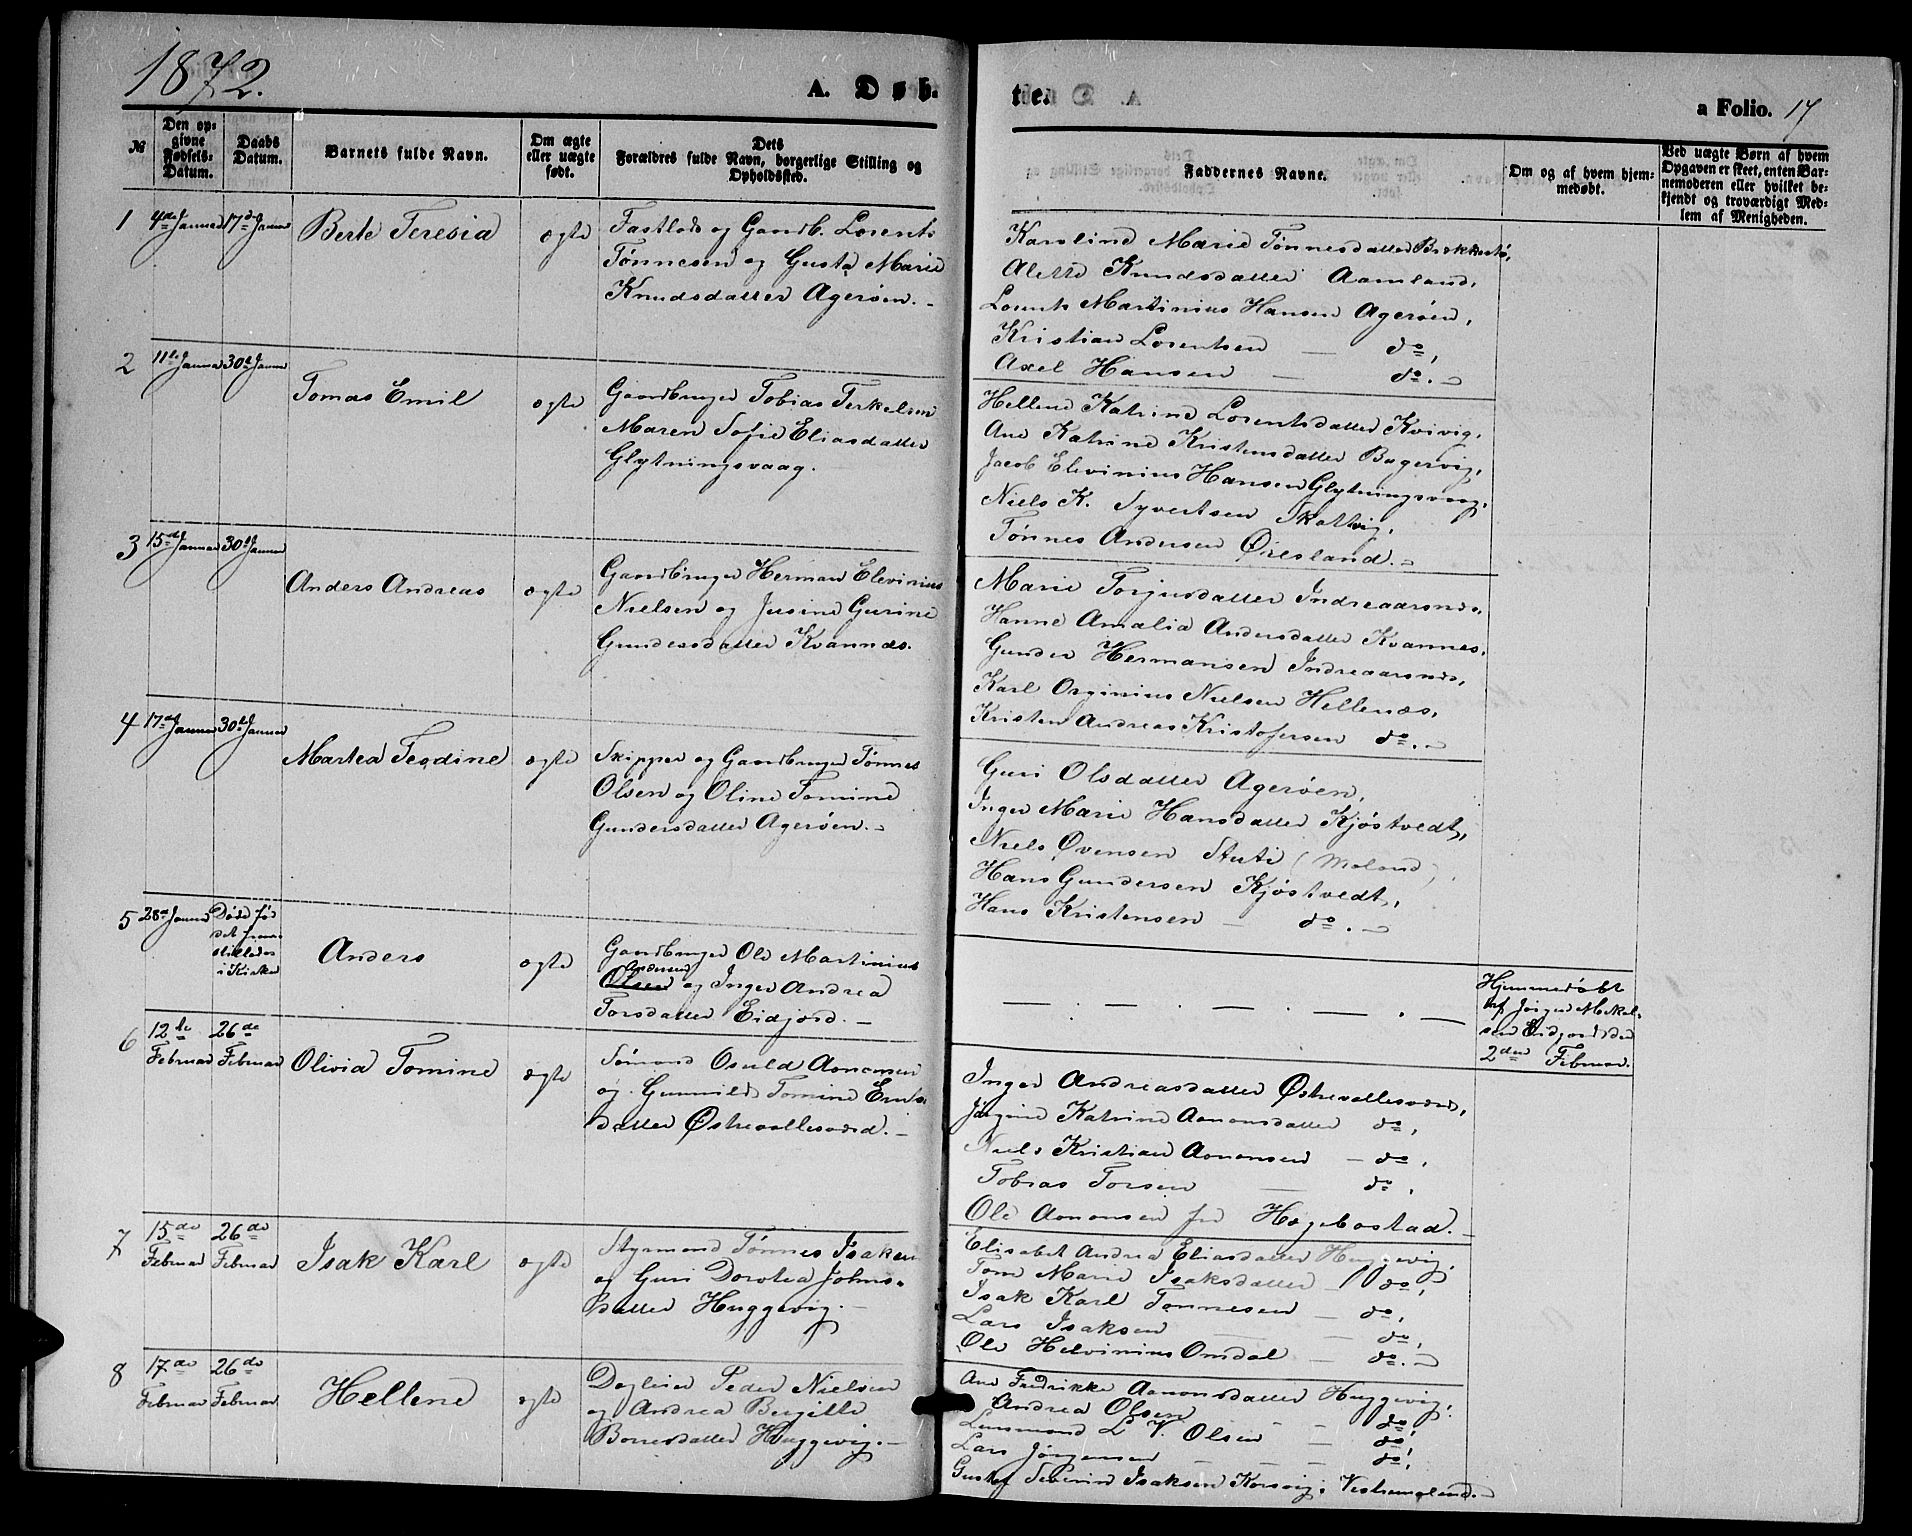 1872.
A. Døb-
№
Den op-
givne
Fødsels-
Datum.
Daabs
Datum.
Barnets fulde Navn.
Om ægte
eller uægte
født.
Dets
Forældres fulde Navn, borgerlige Stilling og
Opholdssted.
1
4de Januar
17de Januar
Berte Teresia
ægte
Fastlods og Gaardb. Lorents
Tønnesen og Gusta Marie
Knudsdatter Agerøen.
2
11te Januar
30te Januar
Tomas Emil
ægte
Gaardbruger Tobias Terkelsen
Maren Sofie Eliasdatter
Glytningsvaag.
3
15de Januar
30te Januar
Anders Andreas
ægte
Gaardbruger Herman Elevinius
Nielsen og Jusine Gurine
Gundersdatter Kvannæs.
4
17de Januar
30te Januar
Martea Teodine
ægte
Skipper og Gaardbruger Tønnes
Olsen og Oline Tomine
Gundersdatter Agerøen.
5
28de Januar
Døde før
det frem-
stilledes
i Kirken
Anders
ægte
Gaardbruger Ole Martinius
Andersen
Olsen og Inger Andrea
Torsdatter Eidjord.
6
12te
Februar
26de
Februar
Olivia Tomine
ægte
Sømand Osuld Aanonsen
og Gunnild Tomine Ernts-
datter Østrevallesværd.
7
15de
Februar
26de
Februar
Isak Karl
ægte
Styrmand Tønnes Isaksen
og Guri Dorotea Johns-
datter Huggevig.
8
17de
Februar
26de
Februar
Hellene
ægte
Dagleier Peder Nielsen
og Andrea Bergitte
Borresdatter Huggevig.
te.
a Folio. 17
Faddernes Navne.
Om og af hvem hjem-
medøbt.
Ved uægte Børn af hvem
Opgaven er skeet, enten Bar-
nemoderen eller hvilket be-
kjendt og troværdigt Med-
lem af Menigheden.
Karoline Marie Tønnesdatter Brekkestø,
Alette Knudsdatter Aamland,
Lorents Martinius Hansen Agerøen,
Kristian Lorentsen — do,
Axel Hansen — do.
Hellene Katrine Lorentsdatter Kvivig,
Ane Katrine Kristensdatter Bugervig,
Jacob Elevinius Hansen Glytningsvaag,
Niels K. Syvertsen Skottvig,
Tønnes Andersen Øresland.
Marie Torjusdatter Indreaarsnes,
Hanne Amalia Andersdatter Kvannes,
Gunder Hermansen Indreaarsnes,
Karl Orginius Nielsen Hellenæs,
Kristen Andreas Kristofersen do.
Guri Olsdatter Agerøen,
Inger Marie Hansdatter Kjøstvedt,
Niels Ovensen Stuti (Moland),
Hans Gundersen Kjøstvedt,
Hans Kristensen — do.
Hjemmedøbt
af Jørgen Mekel-
sen Eidjord den
2den Februar.
Inger Andreasdatter Østrevallesværd,
Jørgine Katrine Aanonsdatter do,
Niels Kristian Aanonsen — do,
Tobias Torsen — do,
Ole Aanonsen fra Hægebostad.
Elisabet Andrea Eliasdatter Huggevig,
Tom Marie Isaksdatter — do,
Isak Karl Tønnesen — do,
Lars Isaksen — do,
Ole Helvinius Omdal — do.
Ane Fredrikke Aanonsdatter Huggevig,
Andrea Olsen — do,
Lensmand L. V. Olsen — do,
Lars Jørgensen — do,
Gustav Severin Isaksen Korsvig i Vestremoland.